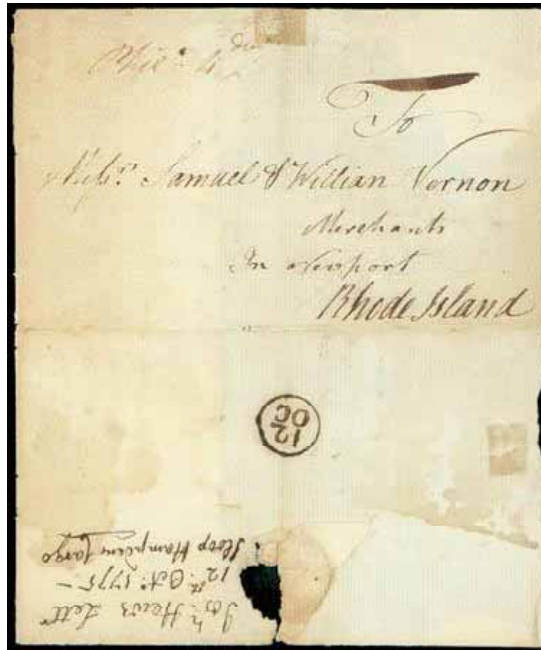 To
Messrs. Samuel & William Vernon
Merchants
In Newport
Rhode Island
12
OC
Jos. Hews Lettr
12th Octr. 1775 —
Sloop Hampden Cargo